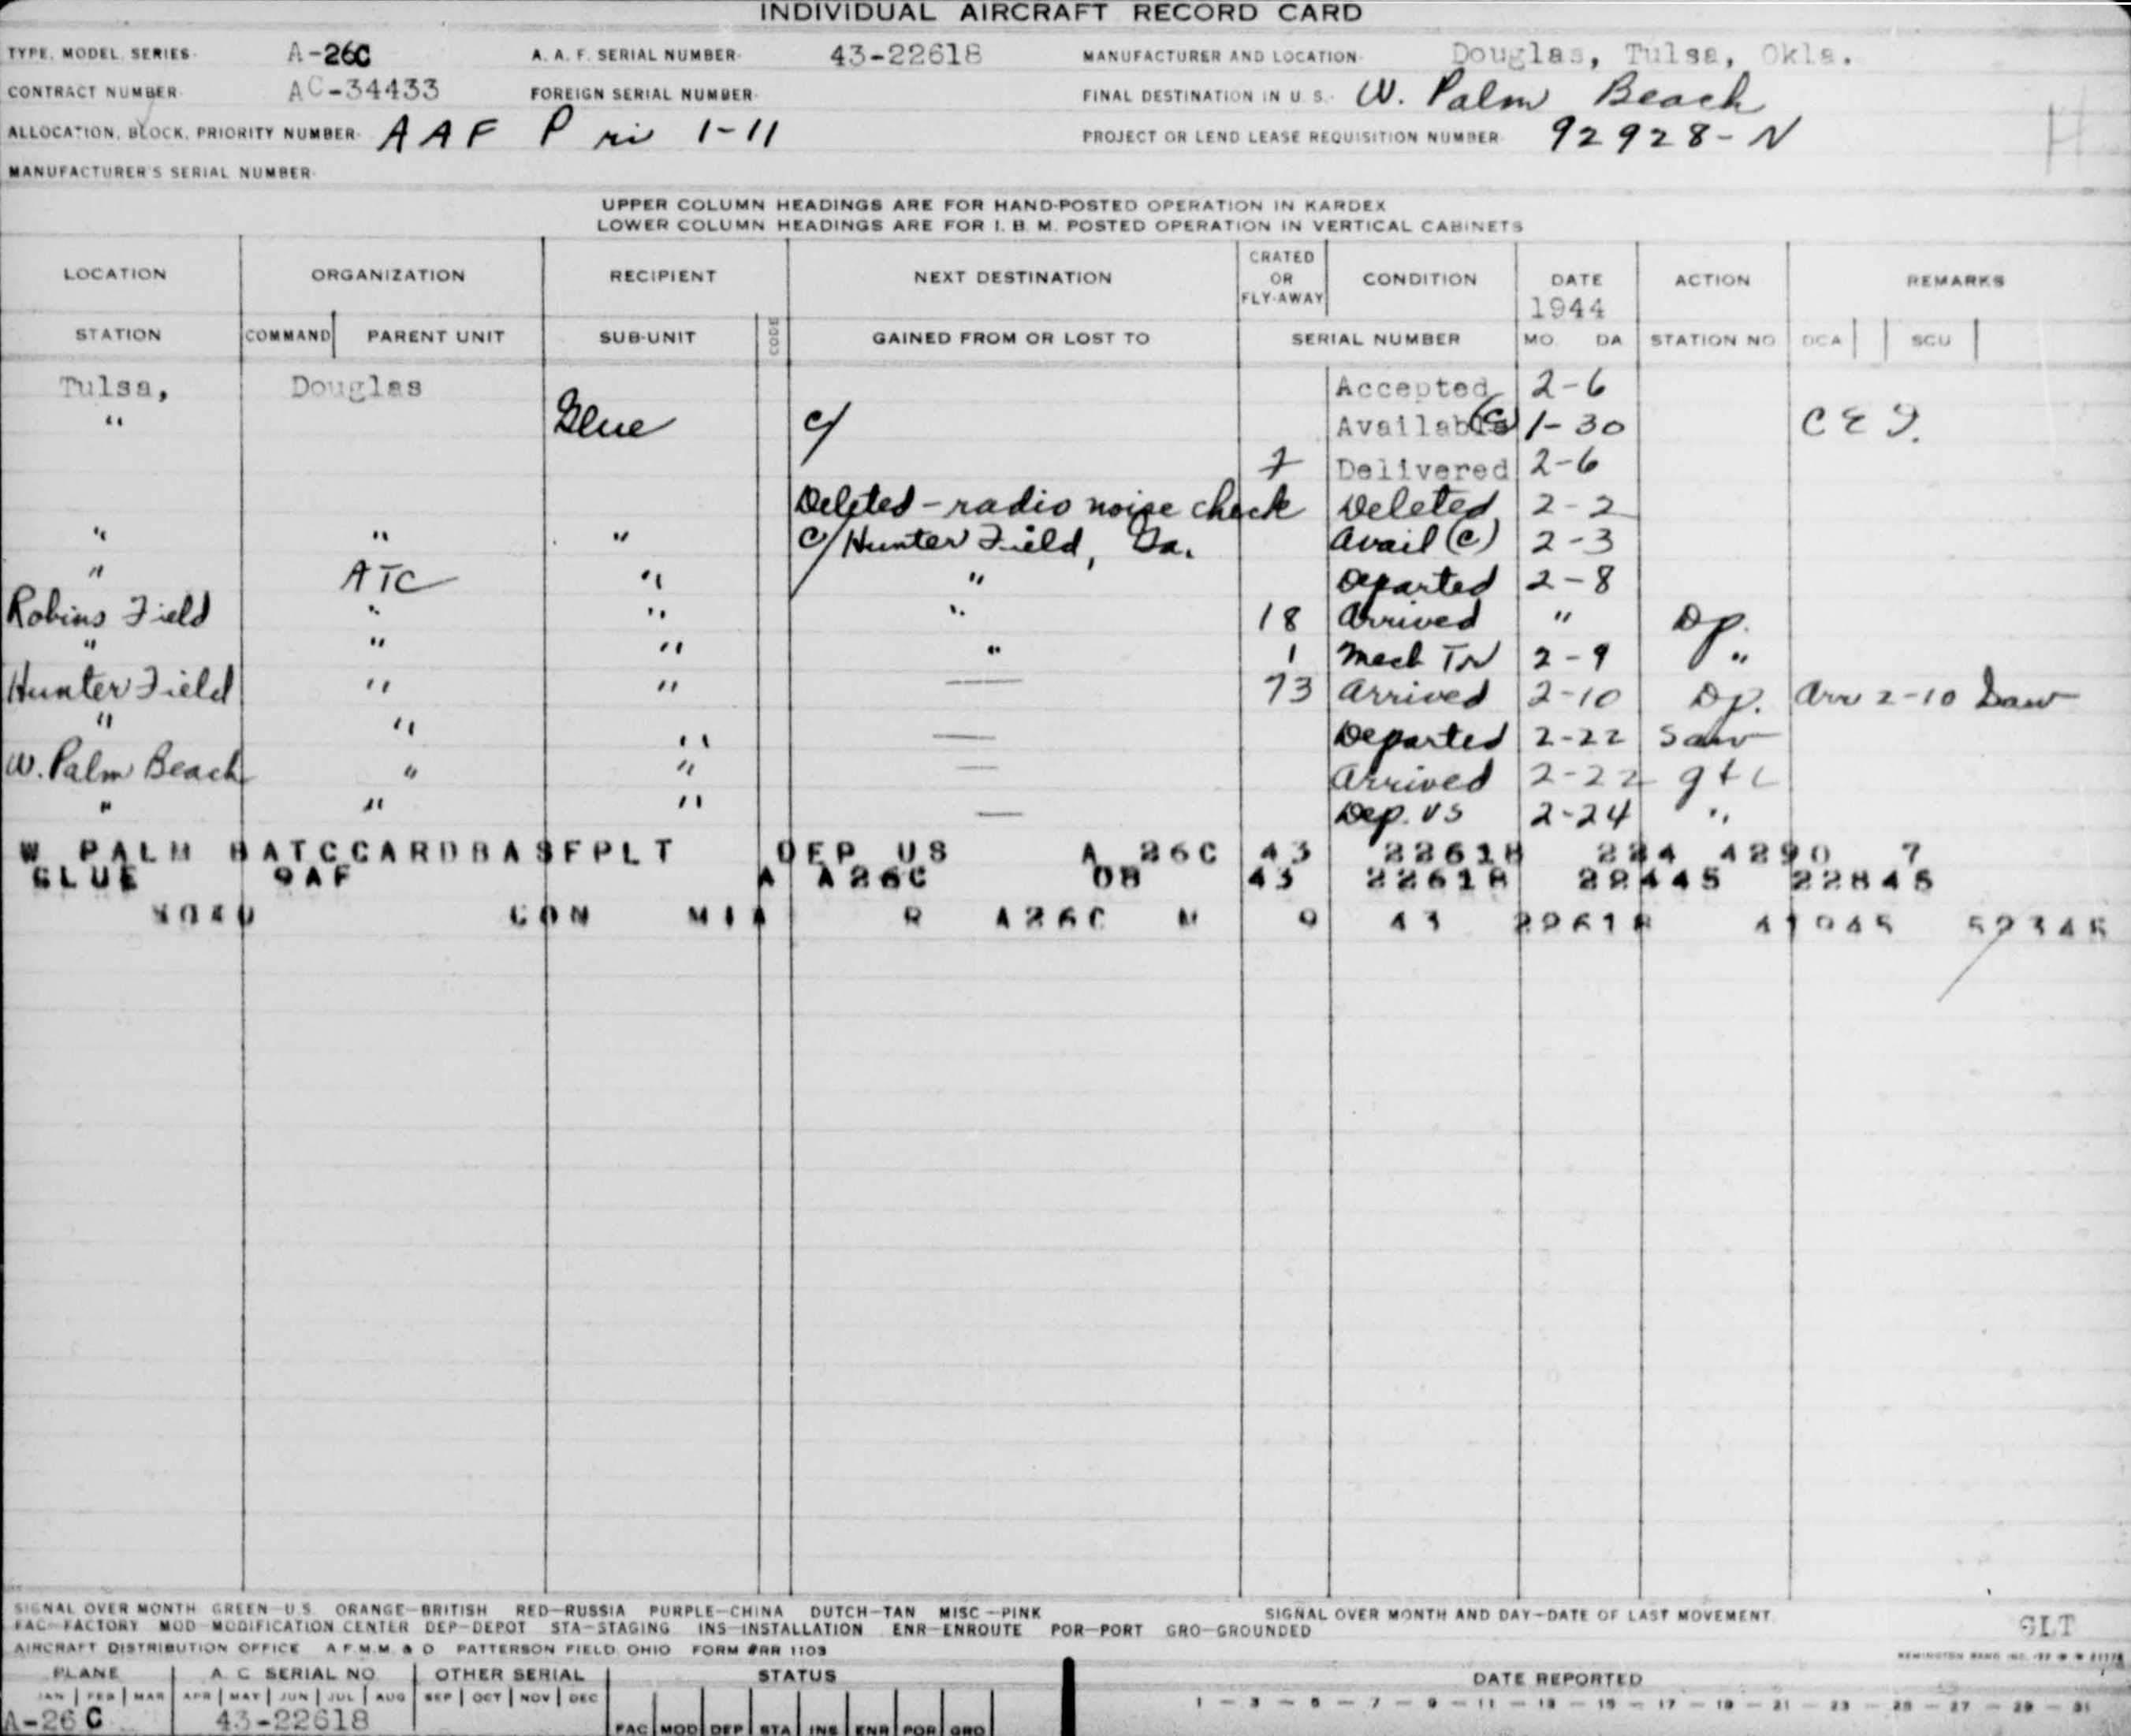 INDIVIDUAL AIRCRAFT RECORD CARD
TYPE, MODEL, SERIES- A-26C A. A. F. SERIAL NUMBER- 43-22618 MANUFACTURER AND LOCATION- Douglas, Tulsa, Okla.
CONTRACT NUMBER- AC-34433 FOREIGN SERIAL NUMBER- FINAL DESTINATION IN U. S.- W. Palm Beach
ALLOCATION, BLOCK, PRIORITY NUMBER- AAF Pri 1-11 PROJECT OR LEND LEASE REQUISITION NUMBER- 92928-N H
MANUFACTURER'S SERIAL NUMBER-
UPPER COLUMN HEADINGS ARE FOR HAND-POSTED OPERATION IN KARDEX
LOWER COLUMN HEADINGS ARE FOR I. B. M. POSTED OPERATION IN VERTICAL CABINETS
LOCATION ORGANIZATION RECIPIENT NEXT DESTINATION CRATED OR FLY-AWAY CONDITION DATE 1944 ACTION REMARKS
STATION COMMAND PARENT UNIT SUB-UNIT CODE GAINED FROM OR LOST TO SERIAL NUMBER MO. DA. STATION NO. DCA SCU
Tulsa, Douglas Accepted 2-6
" Glue c/ Available (c) 1-30 C & I.
7 Delivered 2-6
Deleted - radio noise check Deleted 2-2
" " " c/ Hunter Field, Ga. Avail (c) 2-3
" ATC " " Departed 2-8
Robins Field " " " 18 Arrived " Dp.
" " " " 1 Mech Tr 2-9 "
Hunter Field " " — 73 Arrived 2-10 Dp. Arr 2-10 Saw
" " " — Departed 2-22 Saw
W. Palm Beach " " — Arrived 2-22 gtc
" " " — Dep. US 2-24 "
W PALM BATCCARDBASFPLT DEP US A 26C 43 22618 224 4290 7
GLUE 9AF A A26C OB 43 22618 22445 22845
CON MIA R A26C M 9 43 22618 41945 52345
SIGNAL OVER MONTH GREEN—U.S. ORANGE—BRITISH RED—RUSSIA PURPLE—CHINA DUTCH—TAN MISC—PINK SIGNAL OVER MONTH AND DAY—DATE OF LAST MOVEMENT.
FAC—FACTORY MOD—MODIFICATION CENTER DEP—DEPOT STA—STAGING INS—INSTALLATION ENR—ENROUTE POR—PORT GRO—GROUNDED GLT
AIRCRAFT DISTRIBUTION OFFICE A F. M. M. & D PATTERSON FIELD, OHIO FORM #RR 1103
PLANE A. C. SERIAL NO. OTHER SERIAL STATUS DATE REPORTED
JAN FEB MAR APR MAY JUN JUL AUG SEP OCT NOV DEC 1 — 3 — 5 — 7 — 9 — 11 — 13 — 15 — 17 — 19 — 21 — 23 — 25 — 27 — 29 — 31
A-26C 43-22618 FAC MOD DEP STA INS ENR POR GRO